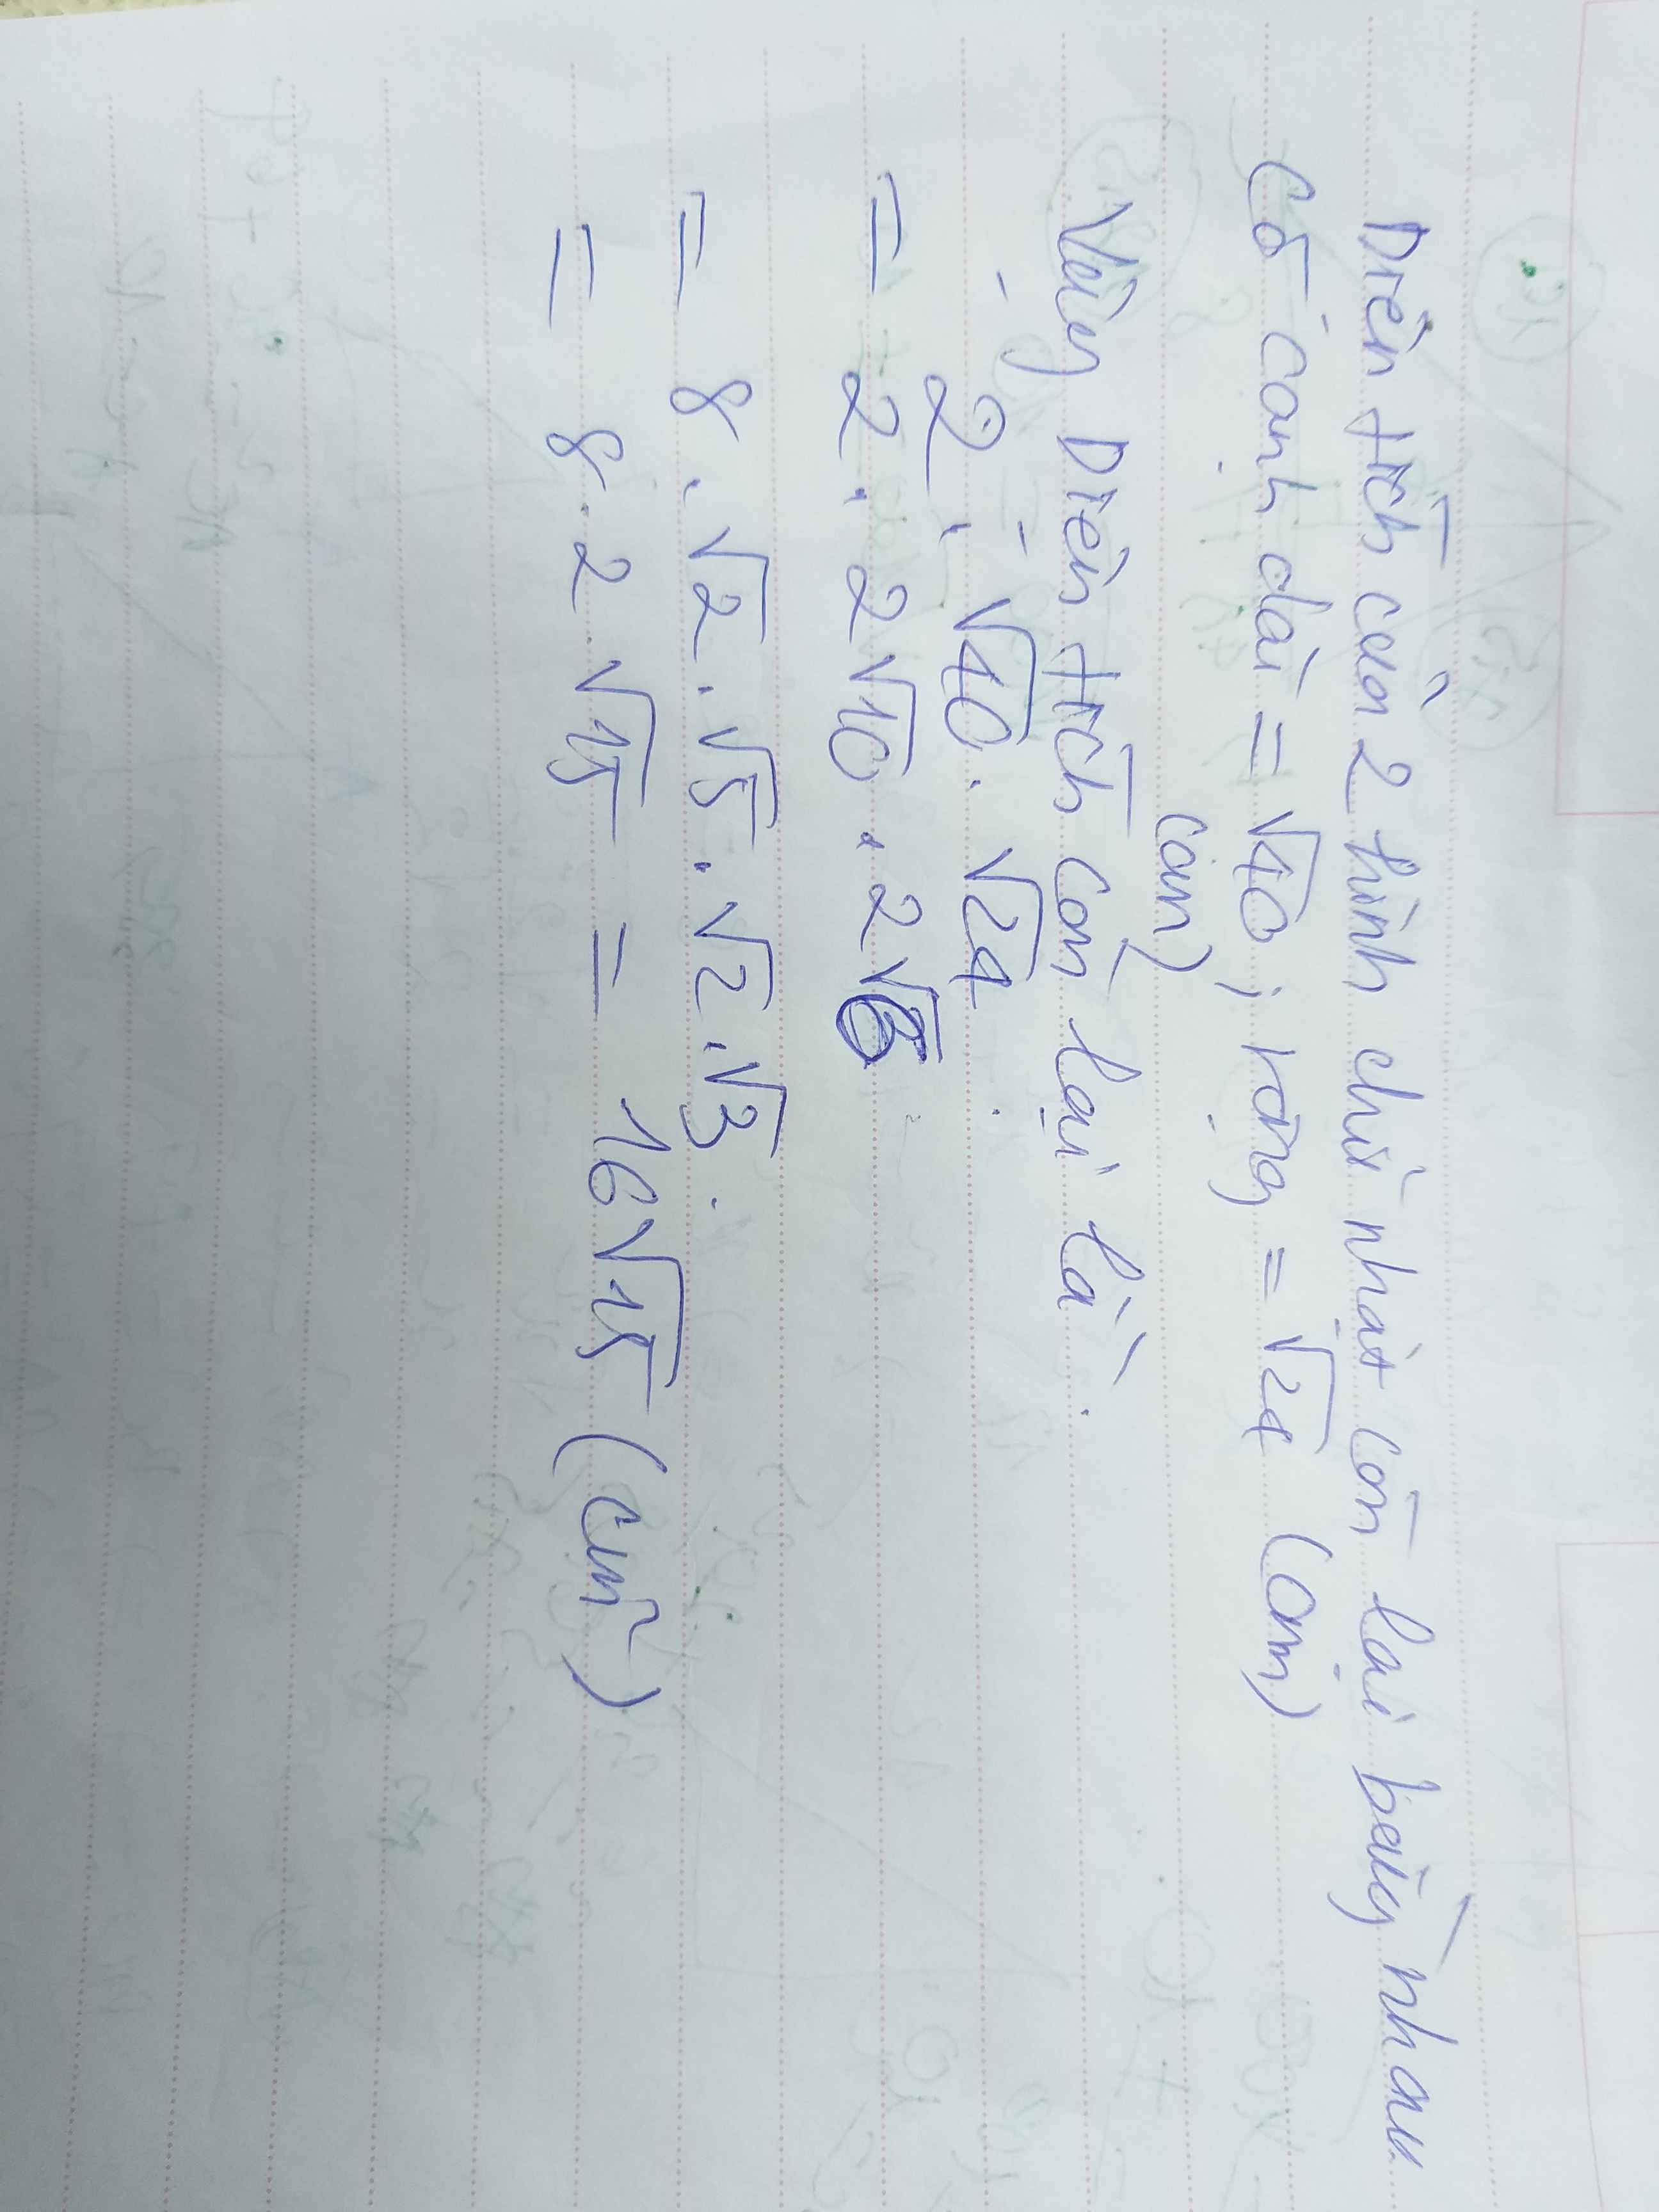 Diện tích của 2 hình chữ nhật còn lại bằng nhau
Có cạnh dài = √40 ; rộng = √24 (cm)
(cm)
Vậy Diện tích còn lại là :
2 . √40 . √24
= 2 . 2√10 . 2√6
= 8 . √2 . √5 . √2 . √3
= 8 . 2 √15 = 16√15 (cm²)